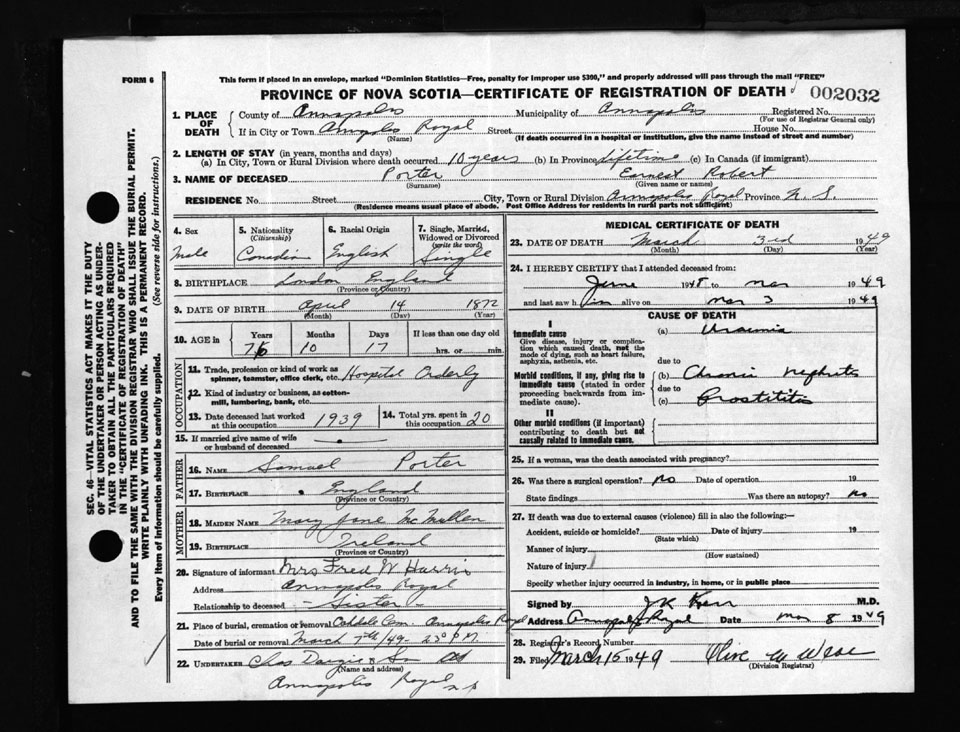 FORM 6
This form if placed in an envelope, marked "Dominion Statistics—Free, penalty for improper use $300," and properly addressed will pass through the mail "FREE"
PROVINCE OF NOVA SCOTIA—CERTIFICATE OF REGISTRATION OF DEATH 002032
SEC. 46—VITAL STATISTICS ACT MAKES IT THE DUTY
OF THE UNDERTAKER OR PERSON ACTING AS UNDER-
TAKER TO OBTAIN ALL THE PARTICULARS REQUIRED
IN THE "CERTIFICATE OF REGISTRATION OF DEATH"
AND TO FILE THE SAME WITH THE DIVISION REGISTRAR WHO SHALL ISSUE THE BURIAL PERMIT.
WRITE PLAINLY WITH UNFADING INK. THIS IS A PERMANENT RECORD.
Every item of information should be carefully supplied. (See reverse side for instructions.)
1. PLACE OF DEATH County of Annapolis Municipality of Annapolis Registered No.
(For use of Registrar General only)
If in City or Town Annapolis Royal Street House No.
(Name) (If death occurred in a hospital or institution, give the name instead of street and number)
2. LENGTH OF STAY (in years, months and days)
(a) In City, Town or Rural Division where death occurred 10 years (b) In Province Lifetime (c) In Canada (if immigrant)
3. NAME OF DECEASED Porter Earnest Robert
(Surname) (Given name or names)
RESIDENCE No. Street City, Town or Rural Division Annapolis Royal Province N.S.
(Residence means usual place of abode. Post Office Address for residents in rural parts not sufficient)
4. Sex 5. Nationality (Citizenship) 6. Racial Origin 7. Single, Married, Widowed or Divorced (write the word)
Male Canadian English Single
8. BIRTHPLACE London England
(Province or Country)
9. DATE OF BIRTH April 14 1872
(Month) (Day) (Year)
10. AGE in Years Months Days If less than one day old
76 10 17 hrs. or min.
OCCUPATION
11. Trade, profession or kind of work as spinner, teamster, office clerk, etc. Hospital Orderly
12. Kind of industry or business, as cotton-mill, lumbering, bank, etc.
13. Date deceased last worked at this occupation 1939 14. Total yrs. spent in this occupation 20
15. If married give name of wife or husband of deceased -
FATHER
16. NAME Samuel Porter
17. BIRTHPLACE England
(Province or Country)
MOTHER
18. MAIDEN NAME Mary Jane McMullen
19. BIRTHPLACE Ireland
(Province or Country)
20. Signature of informant Mrs Fred W Harris
Address Annapolis Royal
Relationship to deceased - Sister -
21. Place of burial, cremation or removal Cem. Annapolis Royal
Date of burial or removal March 7th/49- P.M.
22. UNDERTAKER Chas Dargie & Son
(Name and address)
Annapolis Royal
MEDICAL CERTIFICATE OF DEATH
23. DATE OF DEATH March 3rd 1949
(Month) (Day) (Year)
24. I HEREBY CERTIFY that I attended deceased from:
June 1948 to Mar 1949
and last saw him alive on Mar 3 1949
CAUSE OF DEATH
I
Immediate cause (a) Uraemia
Give disease, injury or complication which caused death, not the mode of dying, such as heart failure, asphyxia, asthenia, etc. due to
Morbid conditions, if any, giving rise to immediate cause (stated in order proceeding backwards from immediate cause). (b) Chronic Nephritis
due to
(c) Prostititis
II
Other morbid conditions (if important) contributing to death but not causally related to immediate cause.
25. If a woman, was the death associated with pregnancy?
26. Was there a surgical operation? No Date of operation 19
State findings Was there an autopsy? No
27. If death was due to external causes (violence) fill in also the following:—
Accident, suicide or homicide? Date of injury 19
(State which)
Manner of injury
(How sustained)
Nature of injury
Specify whether injury occurred in industry, in home, or in public place
Signed by J K Kerr M.D.
Address Annapolis Royal Date Mar 8 1949
28. Registrar's Record Number
29. Filed March 15 1949 Olive W
(Division Registrar)